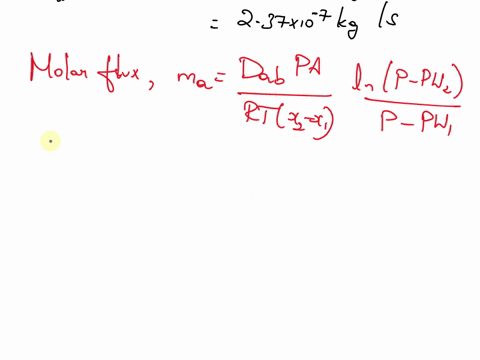 = 2.37x10⁻⁷ kg/s
Molar flux, ma = Dab PA / RT(x₂-x₁) ln(P-PW₂) / P-PW₁